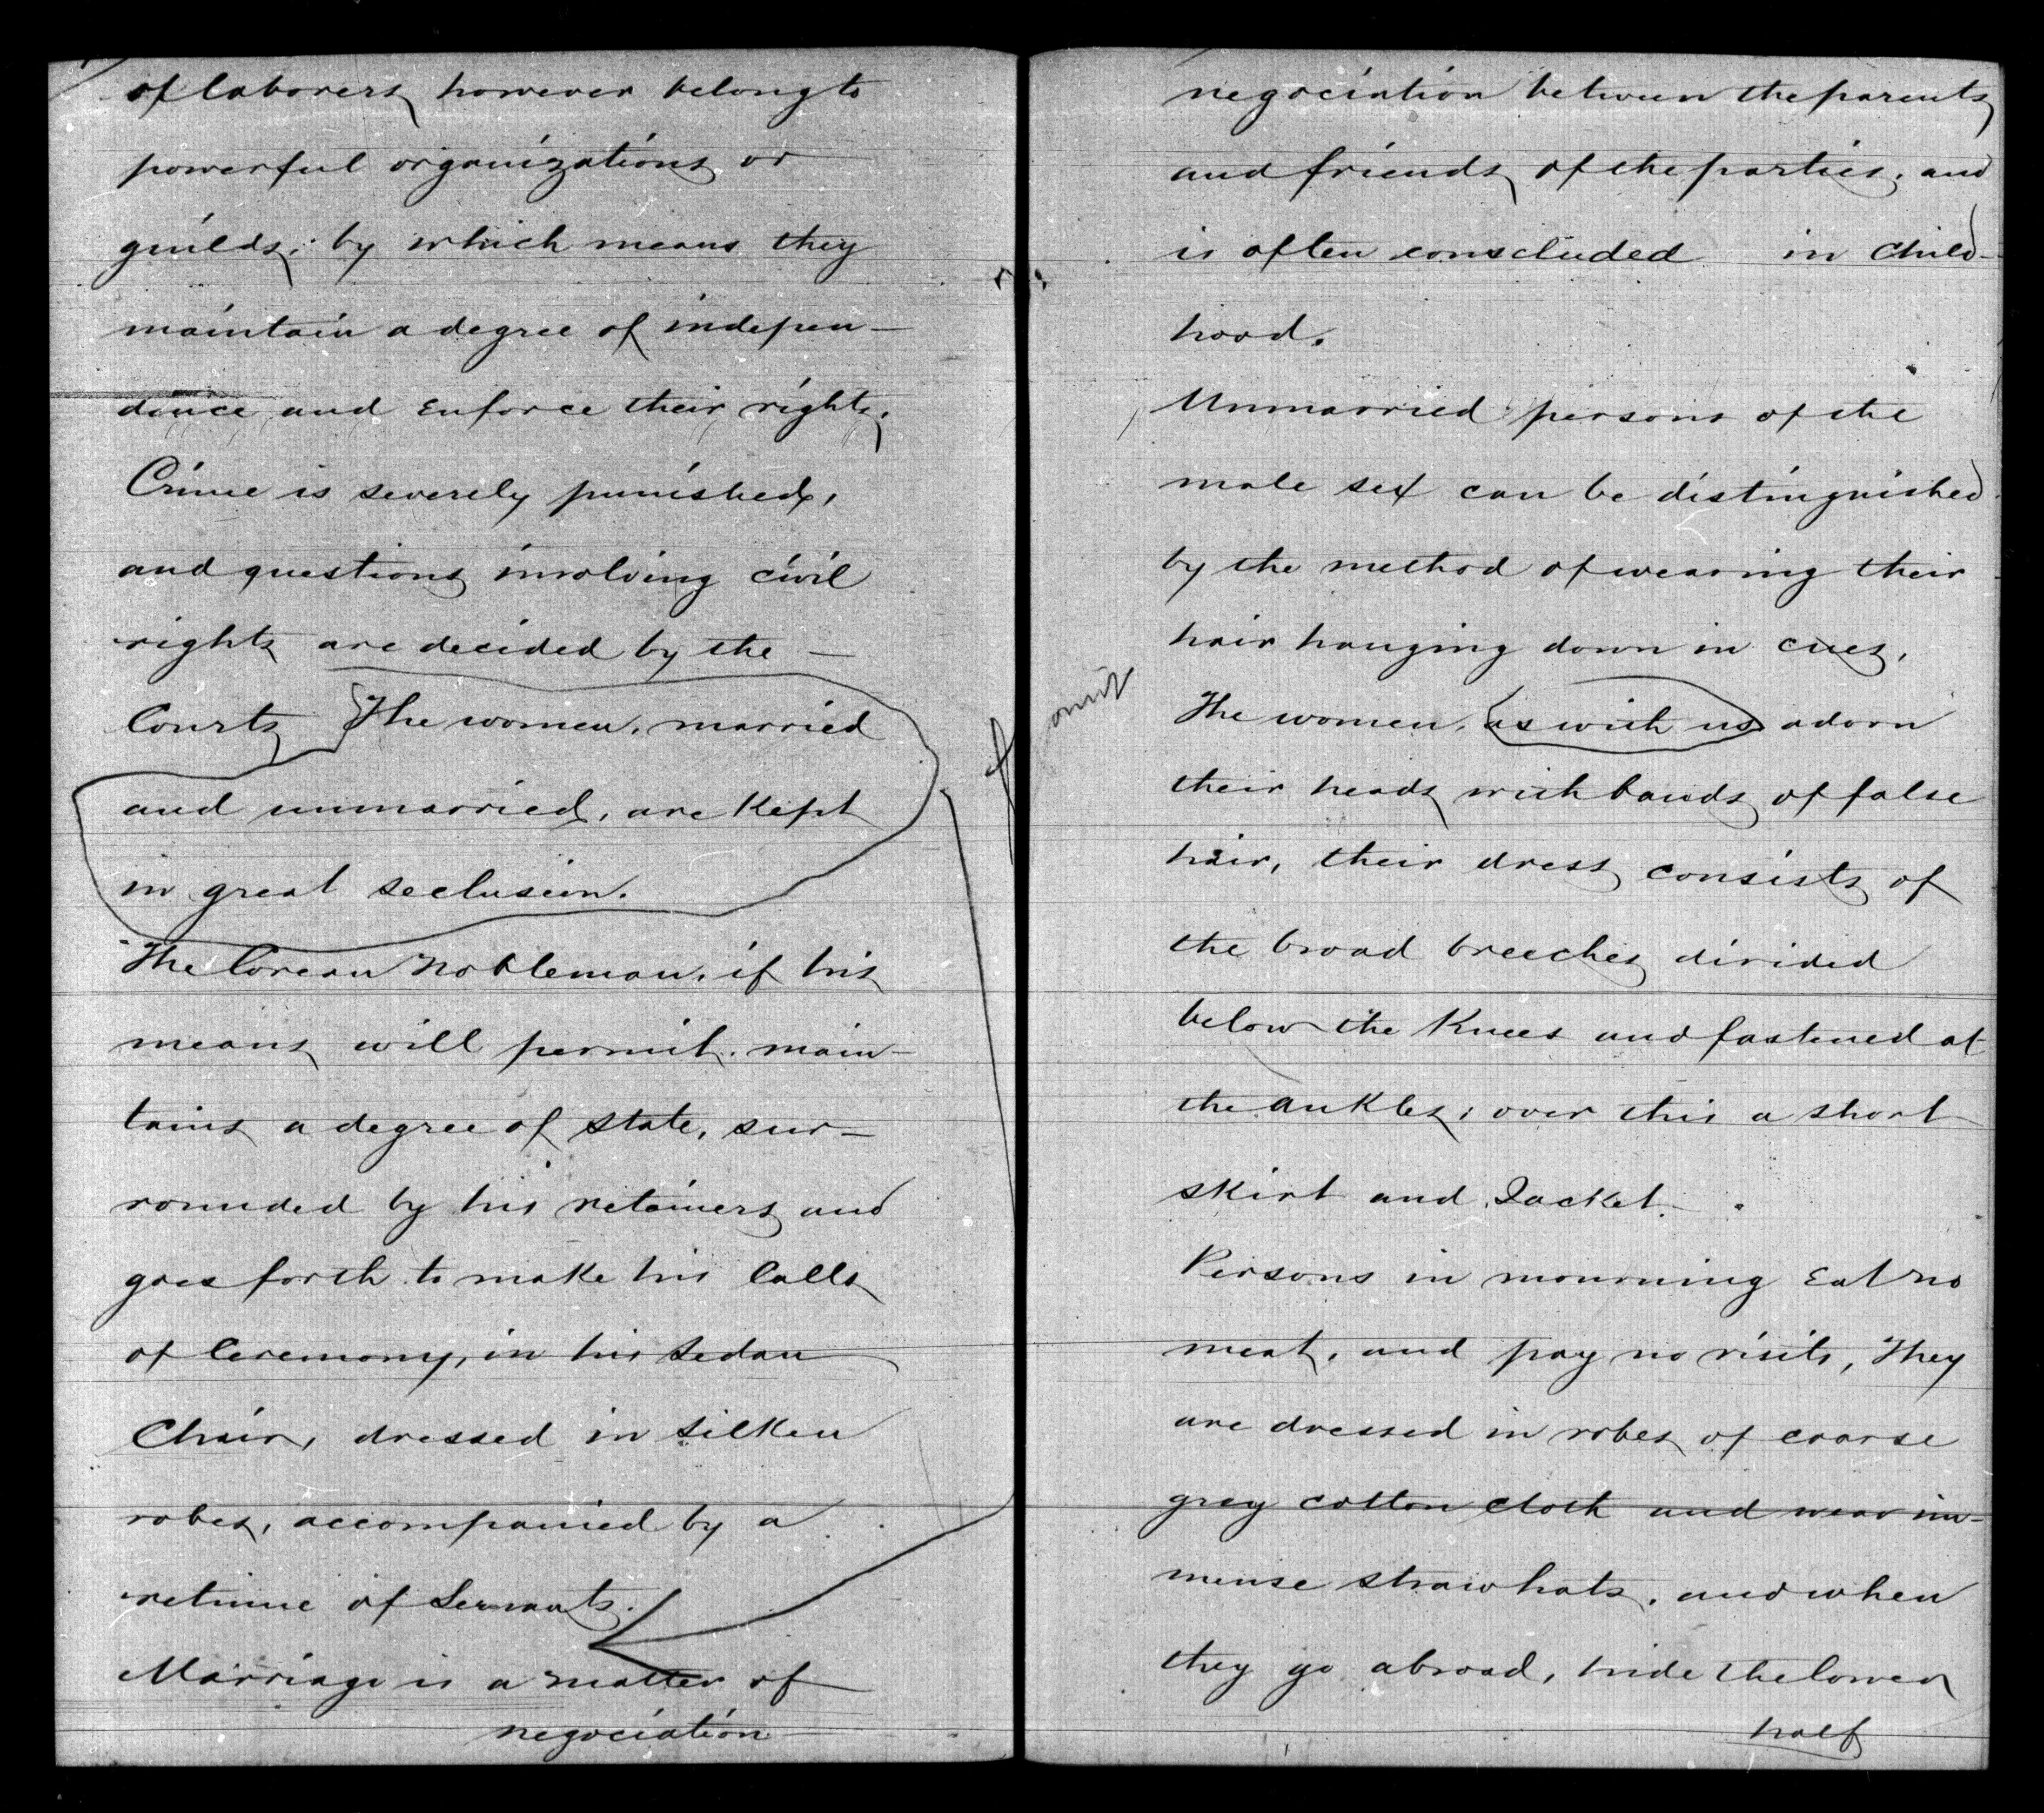 of laborers however belong to
powerful organizations or
guilds; by which means they
maintain a degree of indepen-
dence and enforce their rights.
Crime is severely punished,
and questions involving civil
rights are decided by the —
Courts The women, married
and unmarried, are kept
in great seclusion.
The Corean Nobleman, if his
means will permit, main-
tains a degree of state, sur-
rounded by his retainers and
goes forth to make his Calls
of Ceremony, in his Sedan
Chair, dressed in silken
robes, accompanied by a
retinue of Servants.
Marriage is a matter of
negociation
negociation between the parents
and friends of the parties, and
is often conscluded in Child-
hood.
Unmarried persons of the
male sex can be distinguished
by the method of wearing their
hair hanging down in cues,
omit
The women, as with us adorn
their heads with bands of false
hair, their dress consists of
the broad breeches divided
below the Knees and fastened at
the ankles; over this a short
skirt and Jacket.
Persons in mourning eat no
meat, and pay no visits, They
are dressed in robes of coarse
gray cotton cloth and wear im-
mense straw hats, and when
they go abroad, hide the lower
half